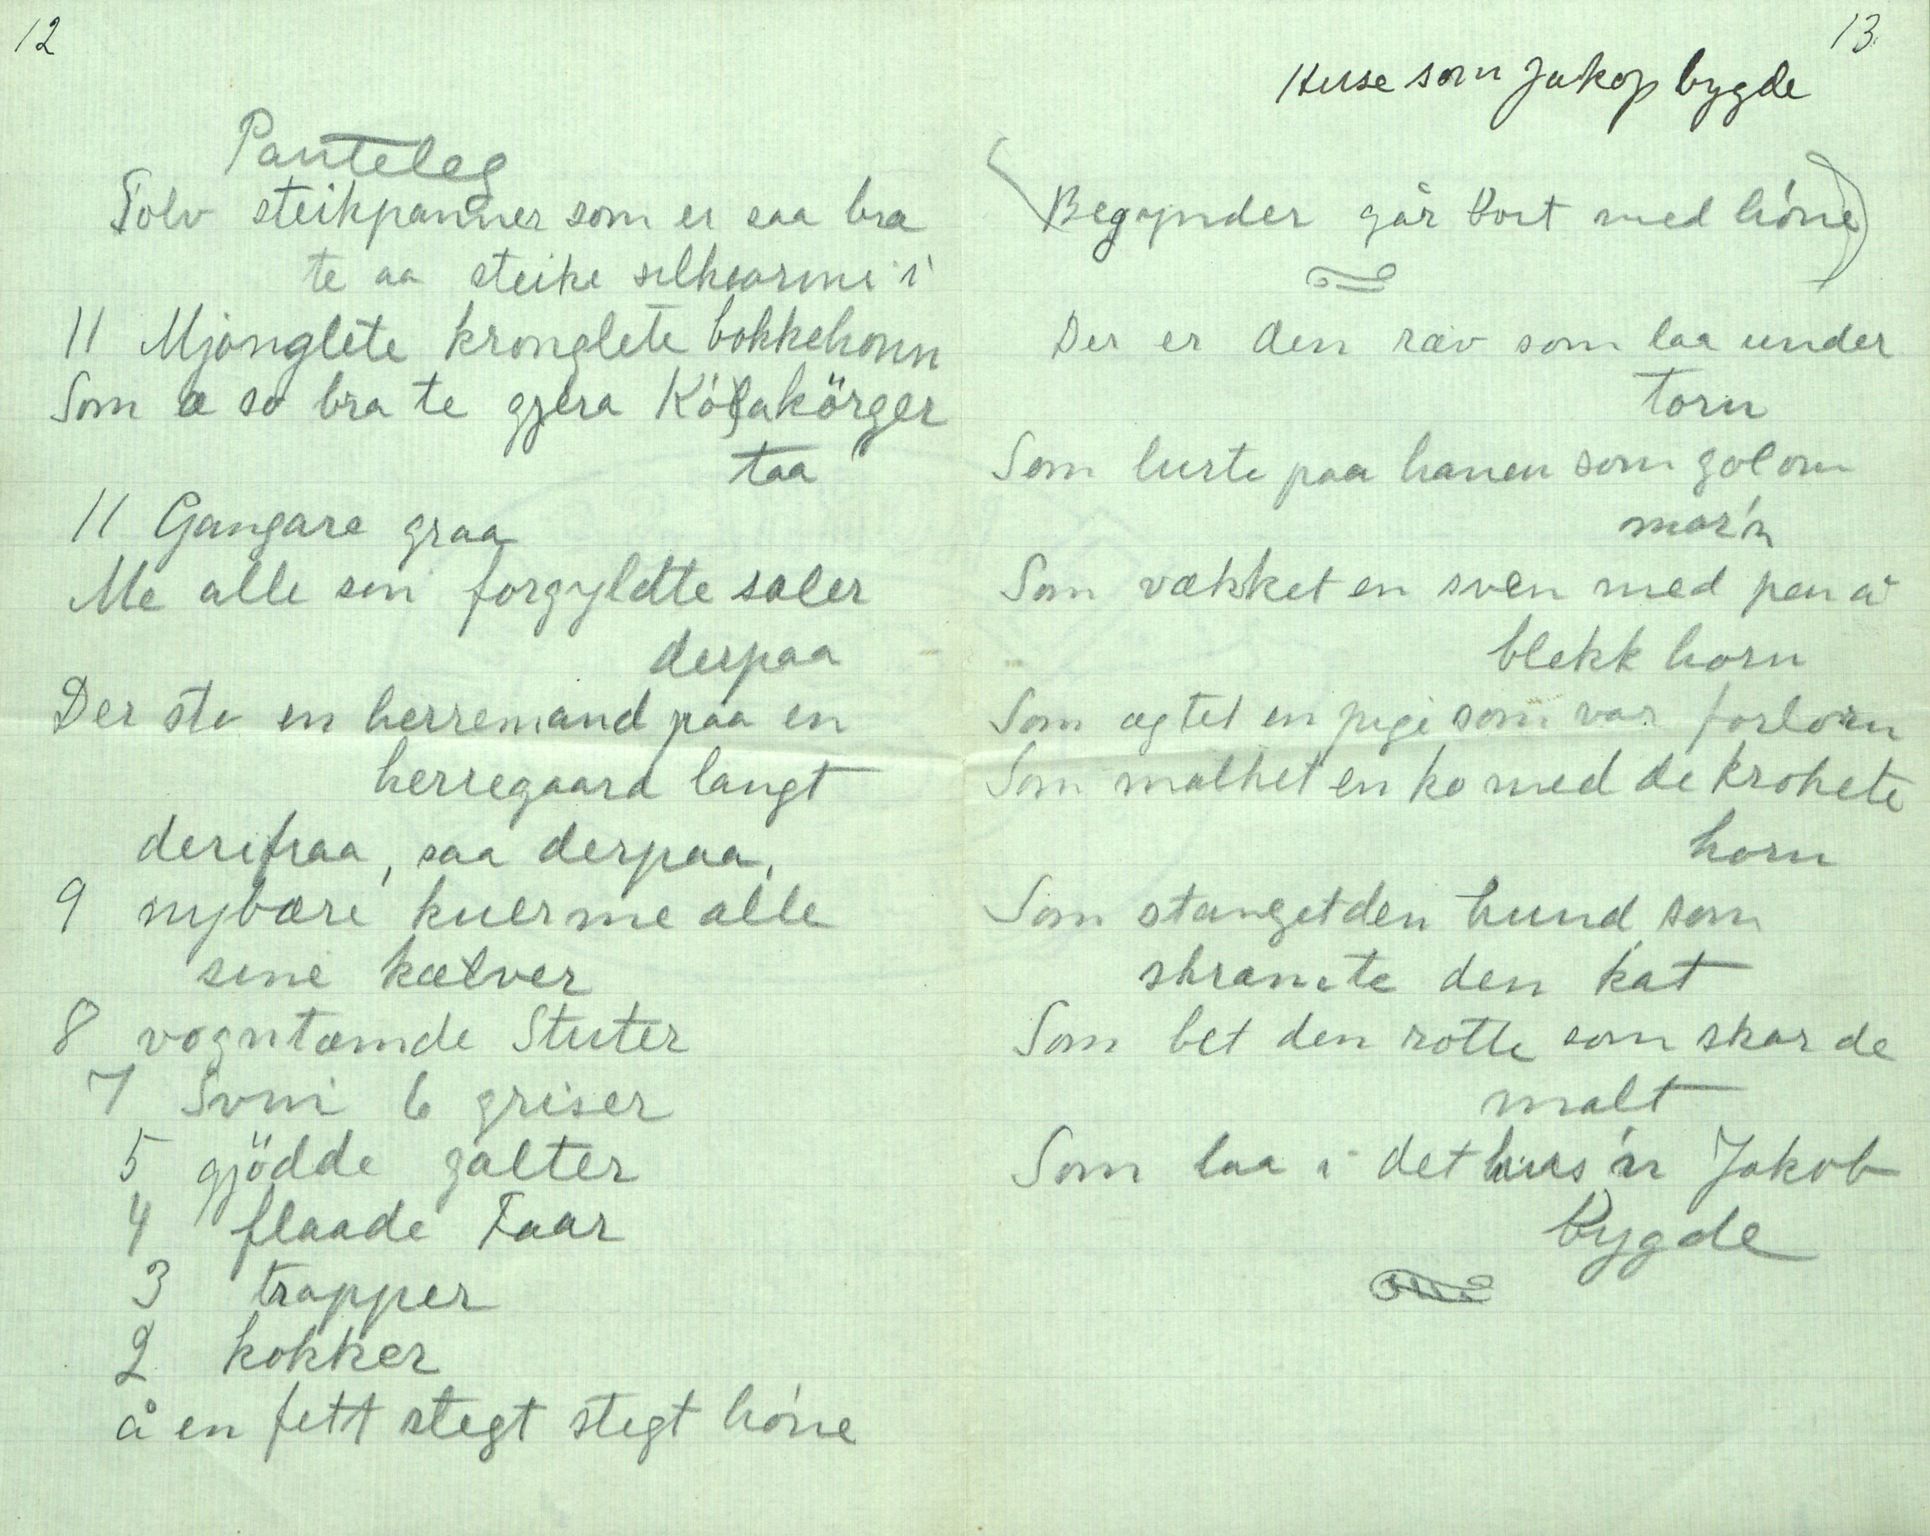 12
Panteleg
Tolv steikpanner som er saa bra
te aa steike silkeorme i
11 Mjonglete kronglete bokkehonn
Som æ so bra te gjera Kólakörger
taa
11 Gangare graa
Me alle sin forgyldte saler
derpaa
Der sto en herremand paa en
herregaard langt
derifraa, saa derpaa,
9 nybære kuer me alle
sine kælver
8 vogntæmde Stuter
7 Svin 6 griser
5 gjödde galter
4 flaade Faar
3 trapper
2 kokker
å en fett stegt stegt hóne
13.
Huse som Jakop bygde
(Begynder går bort med hóne)
Der er den ræv som laa under
torn
Som lurte paa hanen som gol om
mor'n
Som vækket en sven med pen å
blekk horn
Som ægtet en pige som var forlorn
Som malket en ko med de krokete
horn
Som stanget den hund som
skræmte den kat
Som bet den rotte som skar de
malt
Som laa i det hus 'n Jakob
bygde